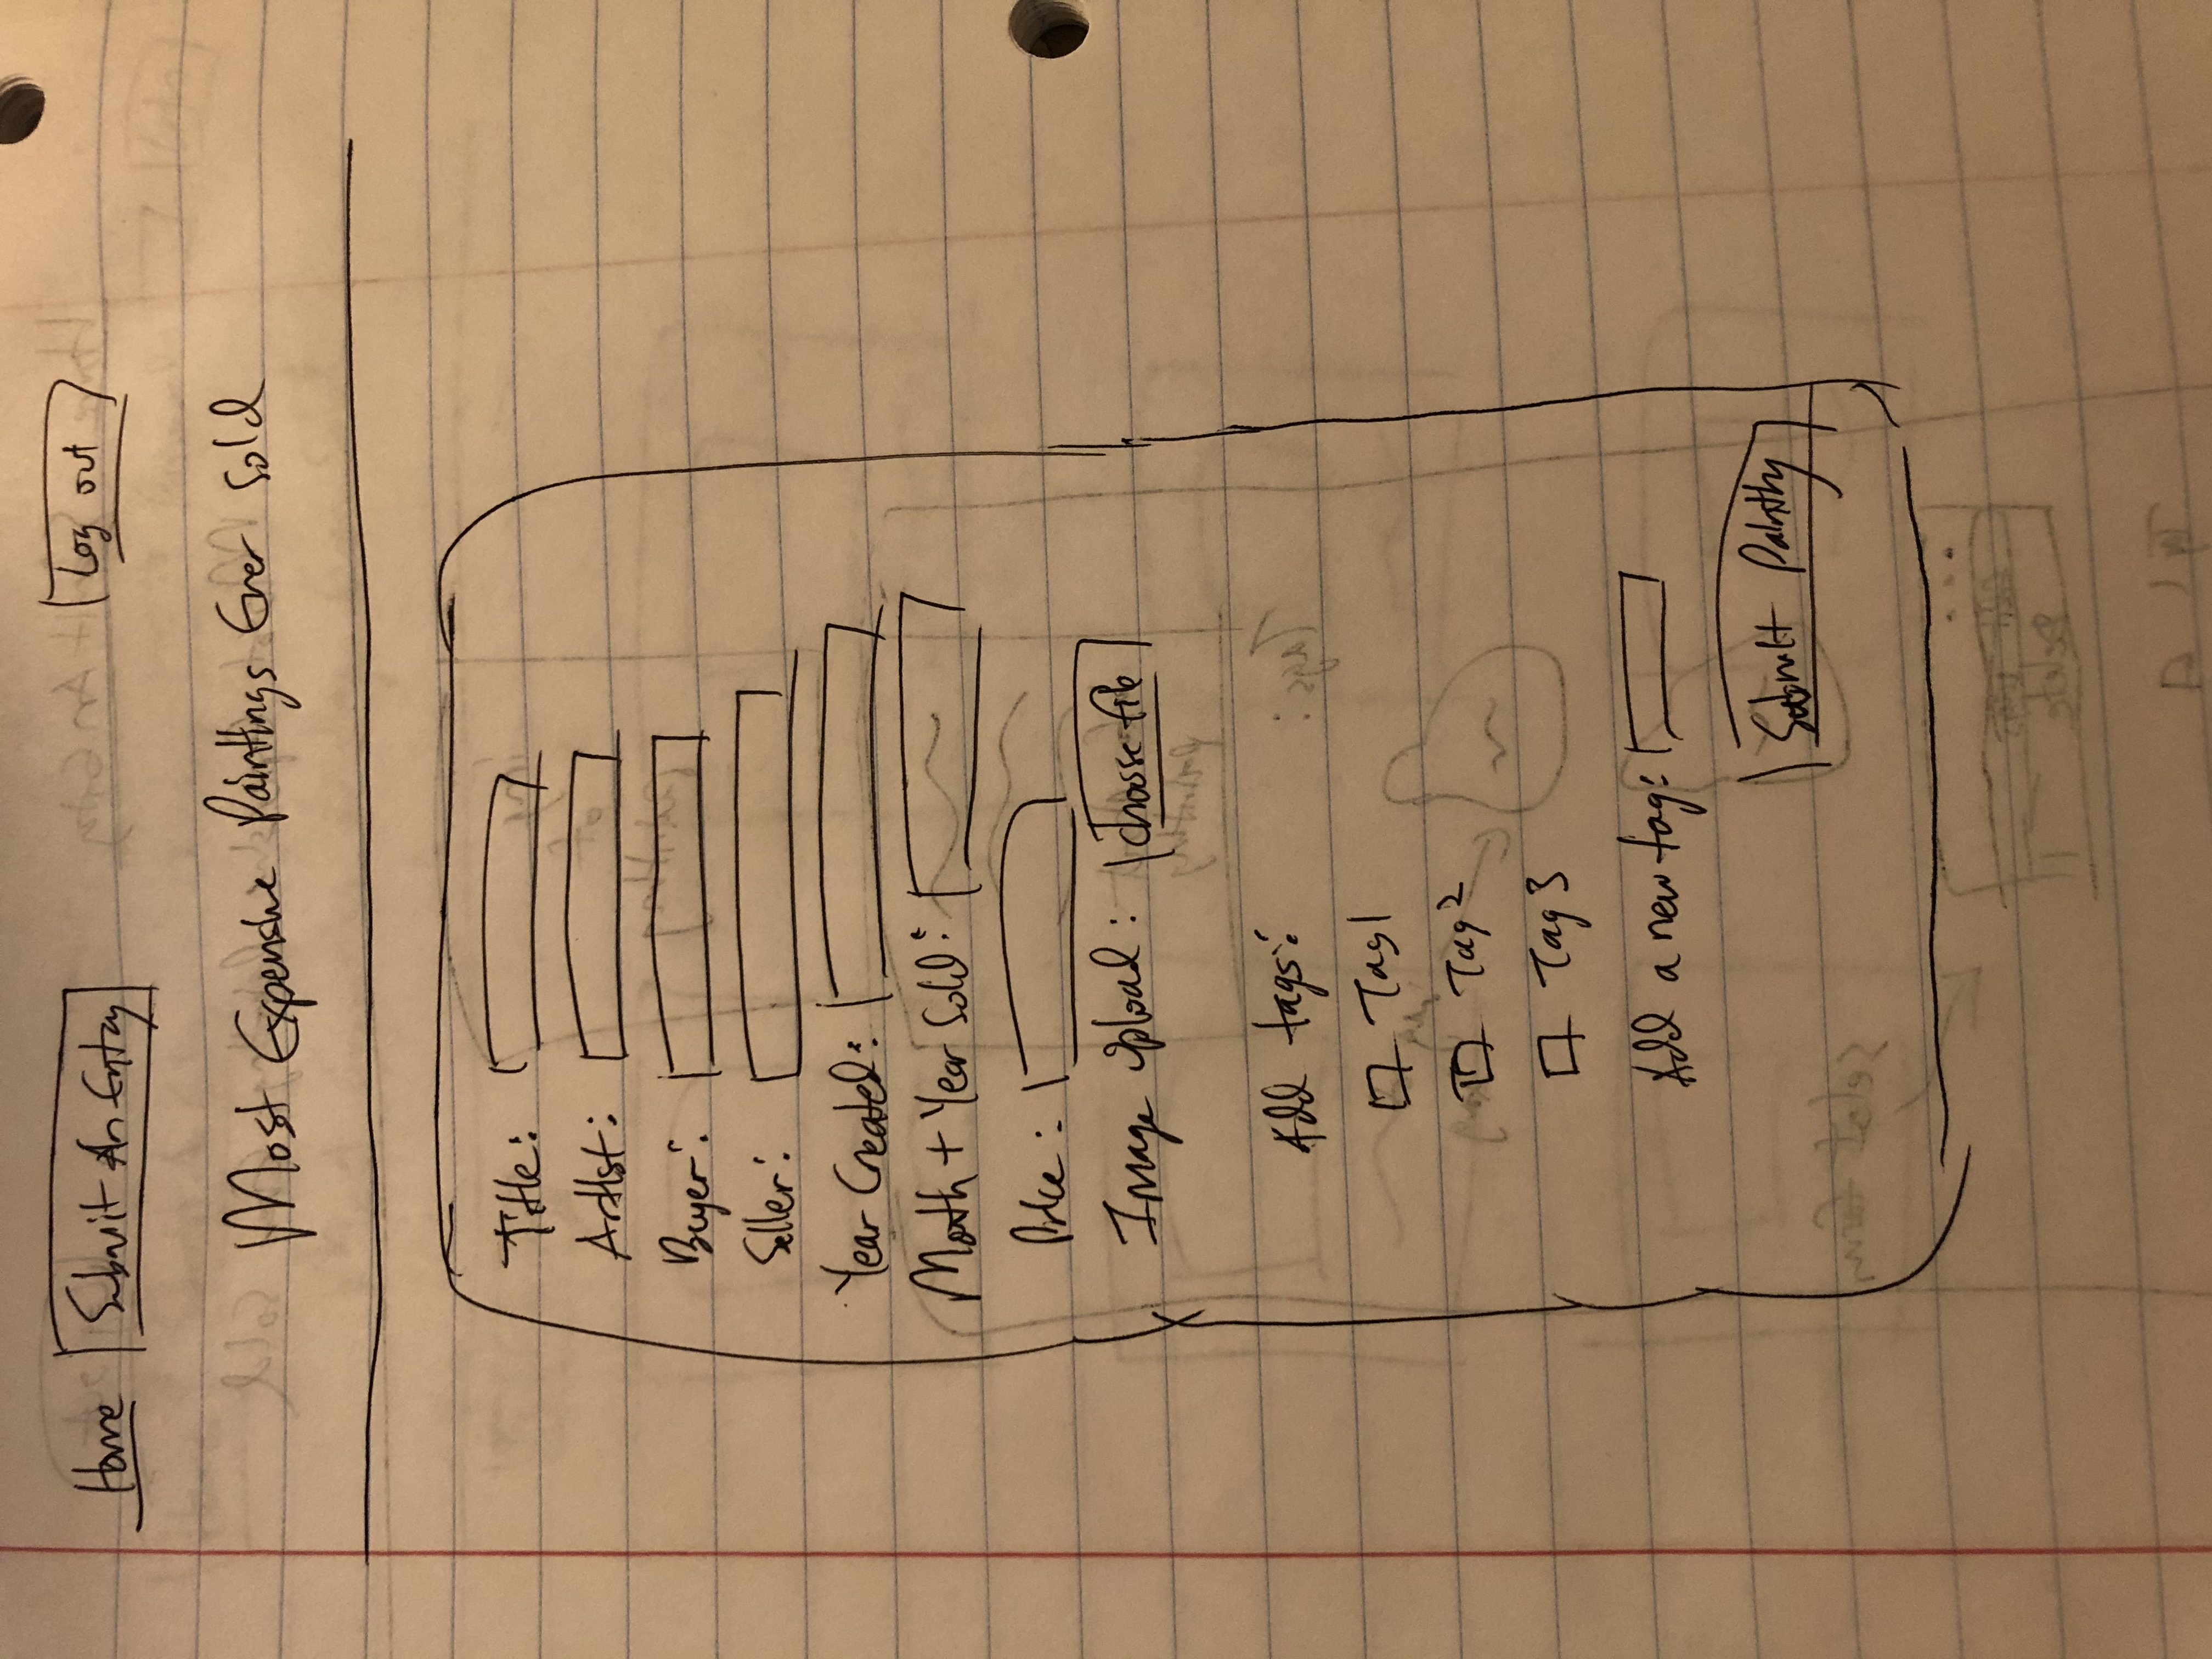 Home Submit An Entry Log out
Most Expensive Paintings Ever Sold
Title:
Artist:
Buyer:
Seller:
Year Created:
Month + Year Sold:
Price:
Image Upload: Choose file
Add tags:
Tag1
Tag2
Tag3
Add a new tag:
Submit Painting